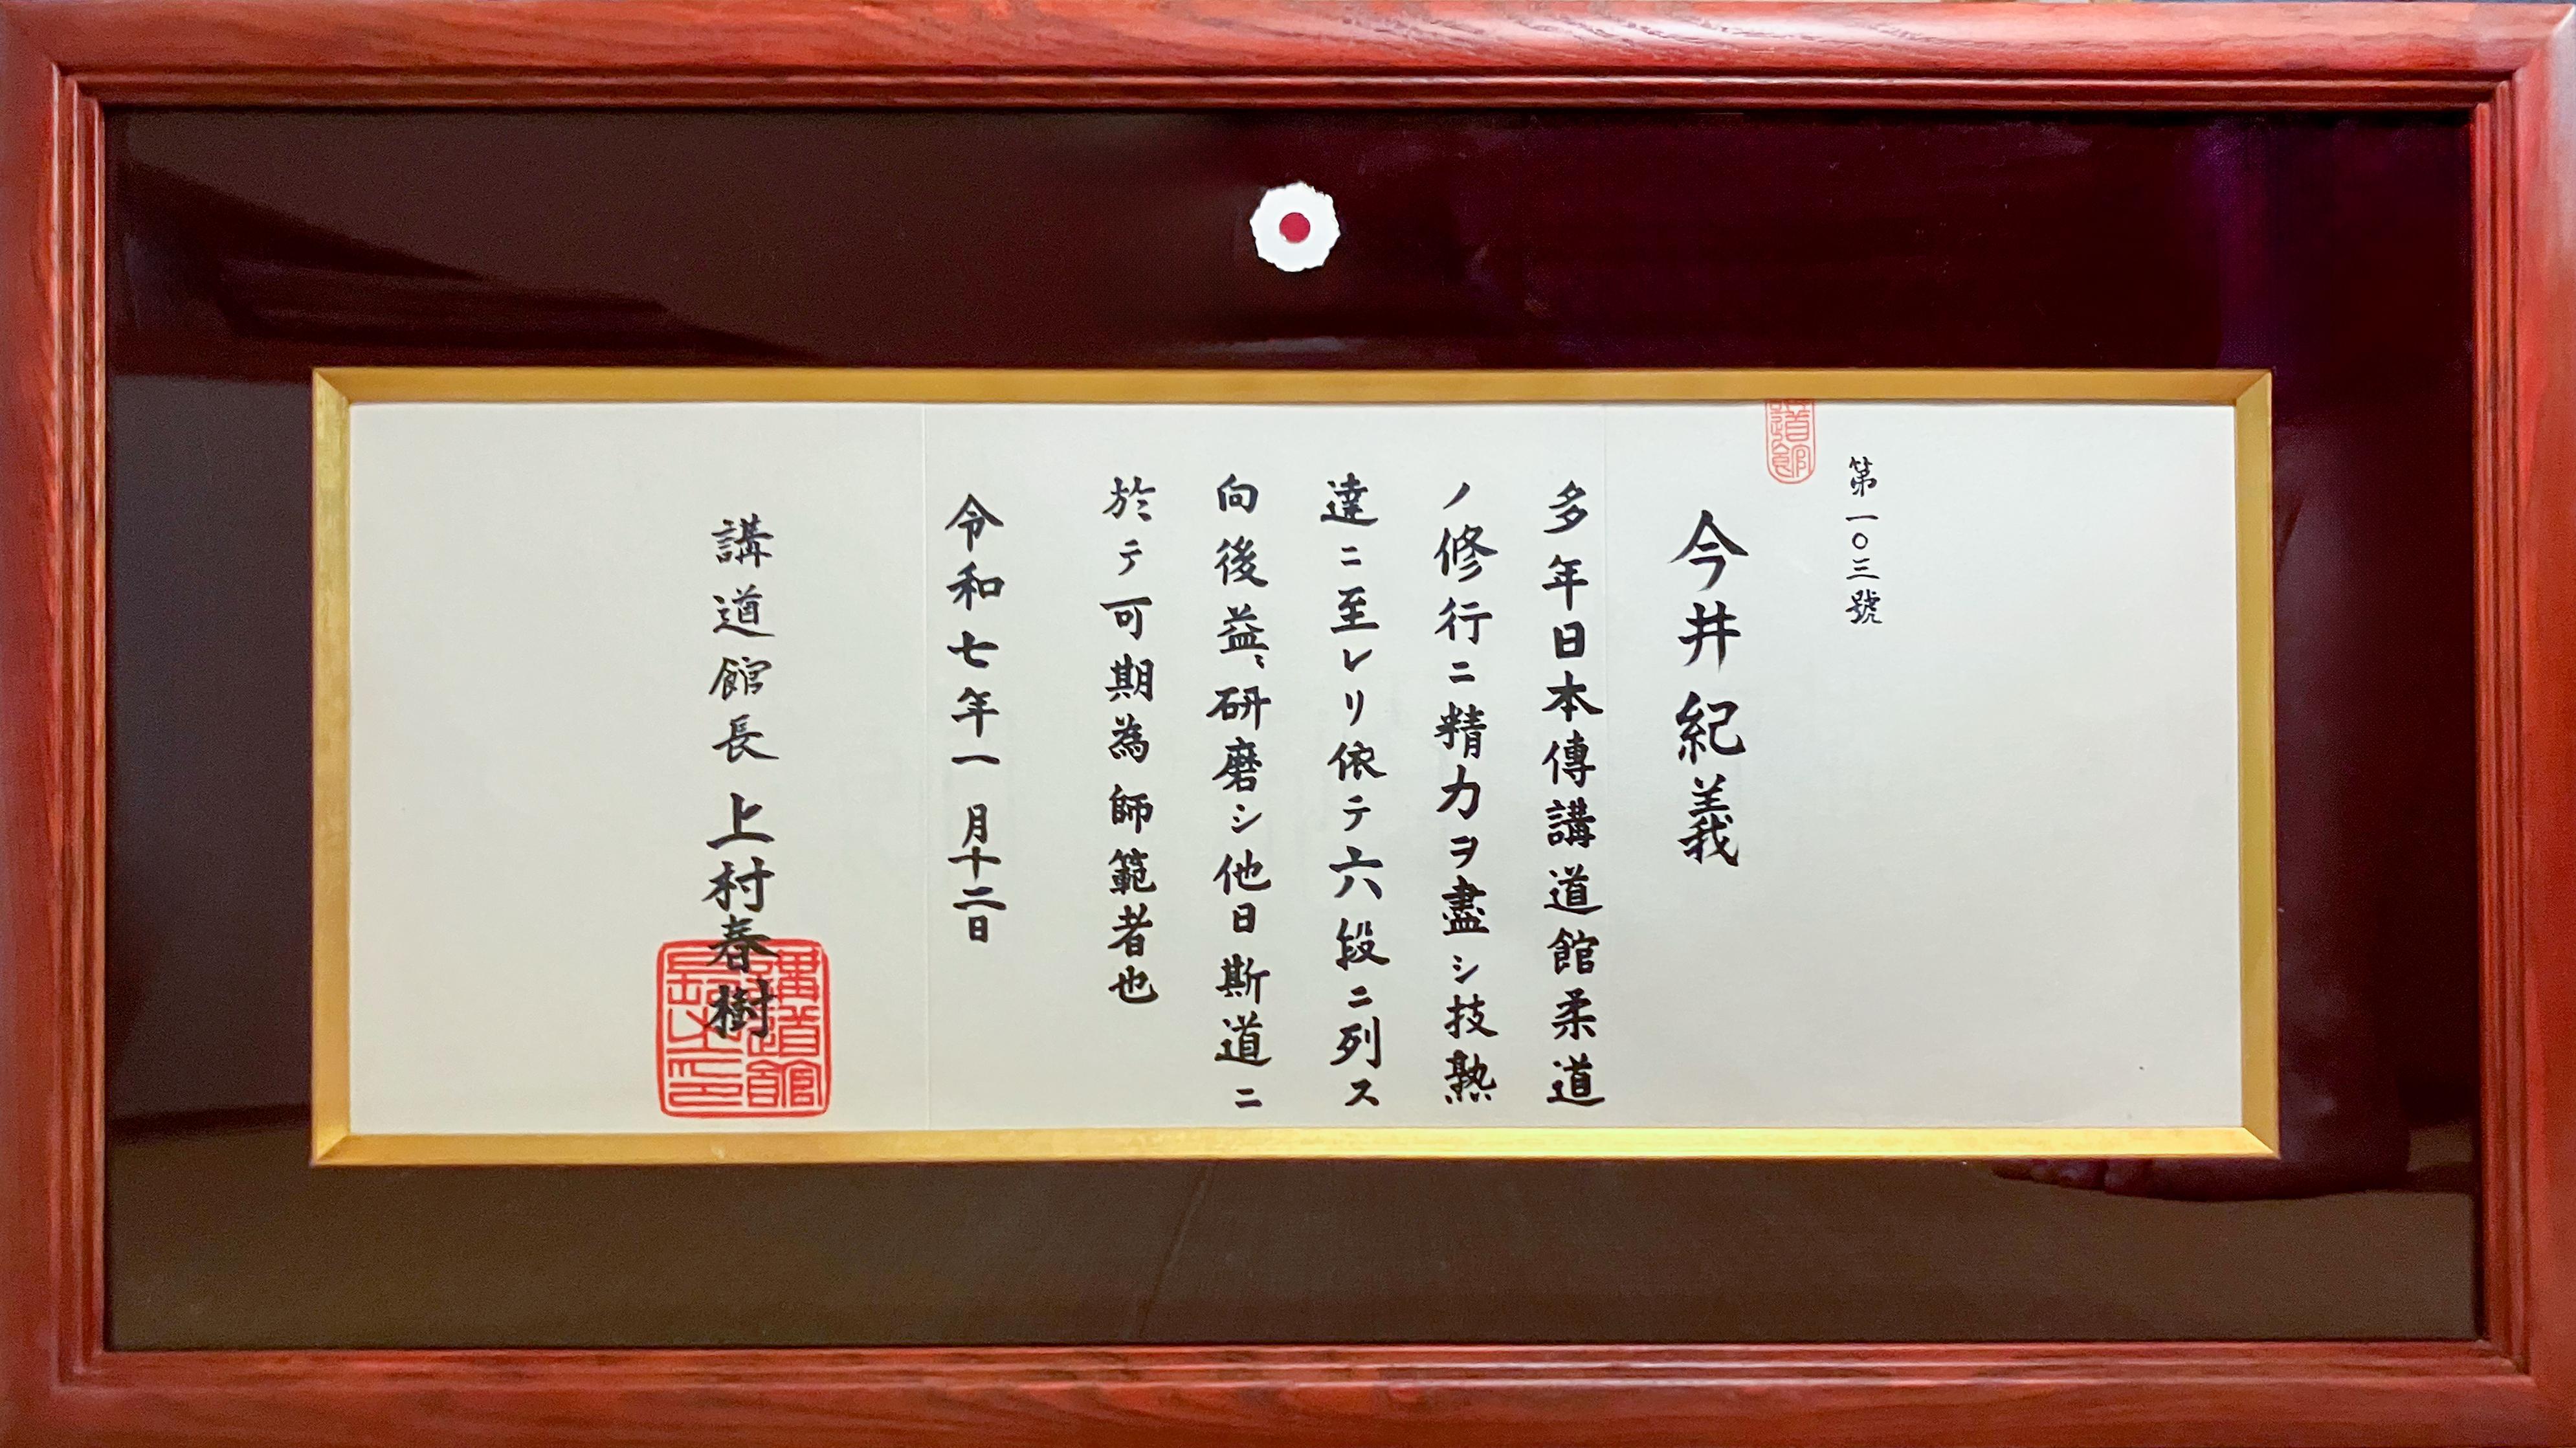 第一〇三號
道館
今井紀義
多年日本傳講道館柔道
ノ修行ニ精力ヲ盡シ技熟
達ニ至レリ依テ六段ニ列ス
向後益〻研磨シ他日斯道ニ
於テ可期為師範者也
令和七年一月十二日
講道館長 上村春樹
講道館長之印